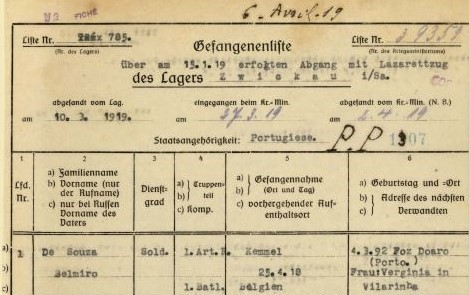 FICHÉ
6. Avril. 19
Liste Nr. 785.
(Nr. des Lagers)
Gefangenenliste
Liste Nr.
(Nr. des Kriegsministeriums)
über am 15.1.19 erfolgten Abgang mit Lazarettzug
des Lagers Zwickau i/Sa.
abgesandt vom Lag.
eingegangen beim Kr.-Min.
abgesandt vom Kr.-Min. (N. B.)
am 10. 3. 1919.
am 27.3.19
am 2.4.19
Staatsangehörigkeit: Portugiese.
P.P 3
1 2 3 4 5 6
Lfd. Nr.
a) Familienname
b) Vorname (nur der Rufname)
c) nur bei Russen Vorname des Vaters
Dienst-
grad
a) Truppen-
b) teil
c) Komp.
a) Gefangennahme
b) (Ort und Tag)
c) vorhergehender Auf-
enthaltsort
a) Geburtstag und =Ort
b) Adresse des nächsten
c) Verwandten
a) 1 De Souza Sold. 1.Art.R. Kemmel 4.3.92 Foz Doaro
(Porto.)
b) Belmiro 25.4.18 Frau:Verginia in
c) 1.Batl. Belgien Vilarinha